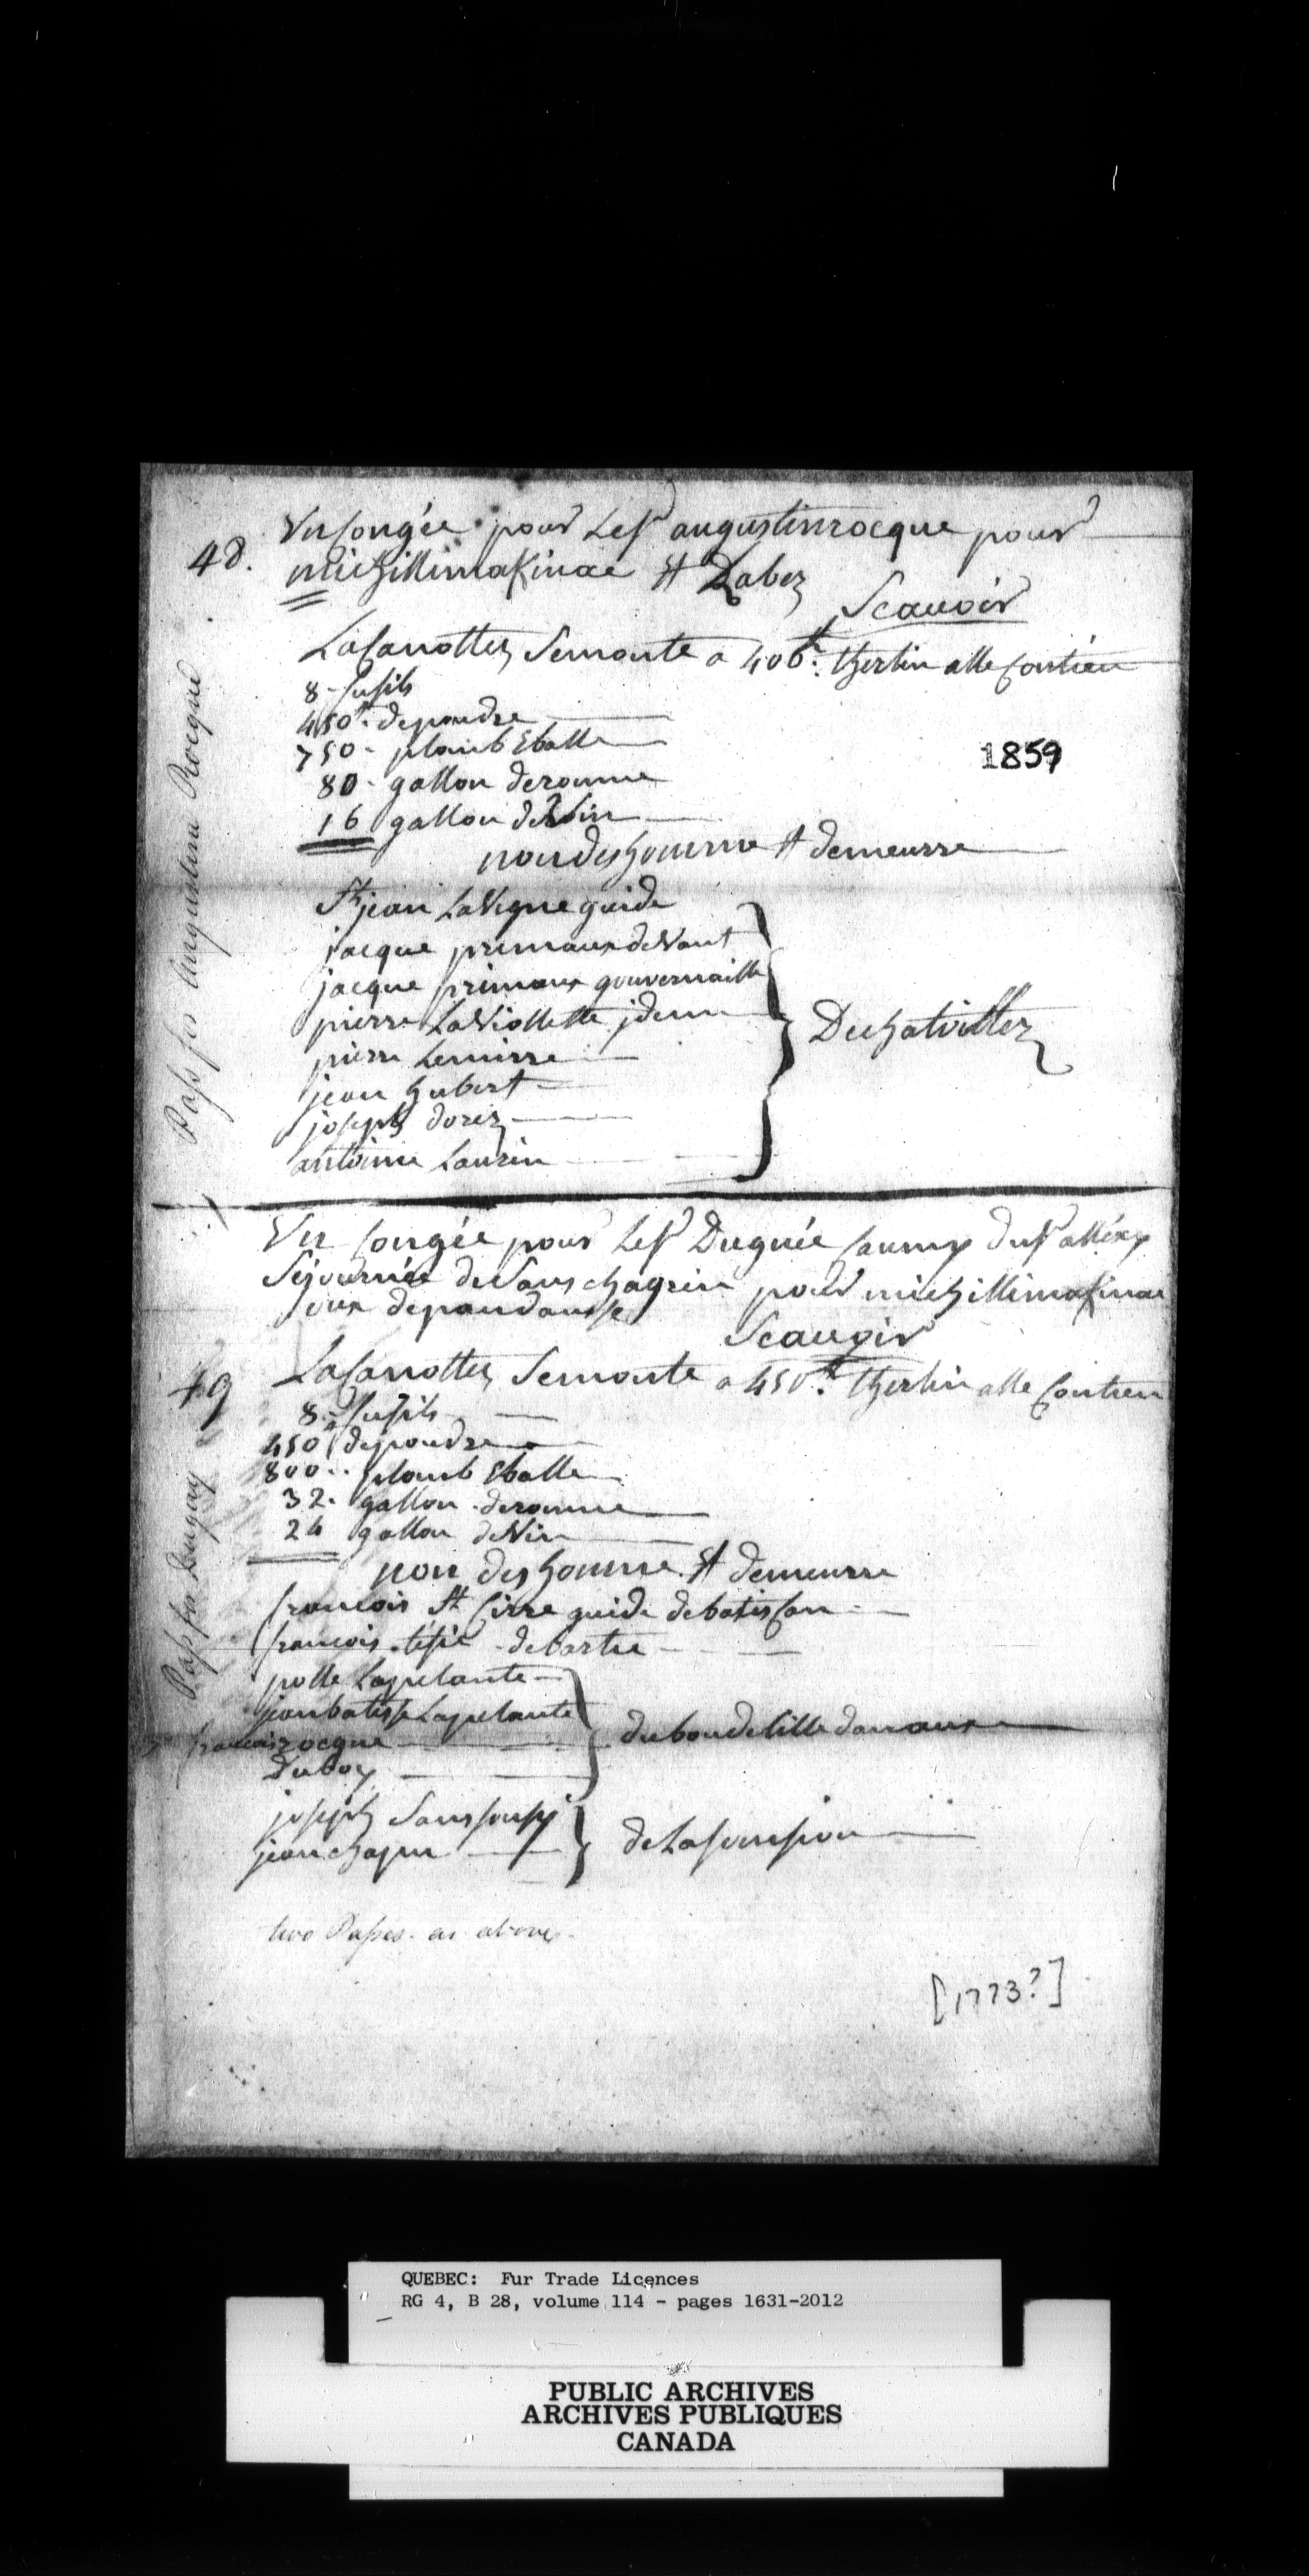 Un Congée pour Le Sr augustin rocque pour
48. michillimakinac Et Labez
Scauoir
La Canottez Se monte a 406 ₶ therlin alle Contien
8 - fusils
450 ₶ de poudre
750 - plomb E balle
80 - gallon de romme
1859
16 gallon de Vin
non des homme Et demeurre
St jean La Vigne guide
jacque primaux deVant
jacque primaux gouvernaille
pierre LaViollette jdem
Dechatvillez
pierre Lemirre
jean hubert
joseph dorez
antoinne Laurin
Pass for Augustin Rocque
Un Congée pour Le Sr Duguée Caumy du Sr alléxy
Séjournée de Sans chagrin pour michillimakinac
Oux depandansse
Scauoir
49 La Canottez Se monte a 450 ₶ therlin alle Contien
8 - fusils
450 de poudre
800 .. plomb E balle
32 . gallon de romme
24 gallon de Vin
non des homme Et demeurre
francois St Cirre guide de batisCan
francois tesié de bartie
polle Laplante
jean batiste Laplante
francois rocque
du bou de lille danaux
Duboy
joseph Sans Soucy
jean chapu
de Lasonsion
Pass for Dugay
two Passes as above
[1773?]
QUEBEC: Fur Trade Licences
RG 4, B 28, volume 114 - pages 1631-2012
PUBLIC ARCHIVES
ARCHIVES PUBLIQUES
CANADA